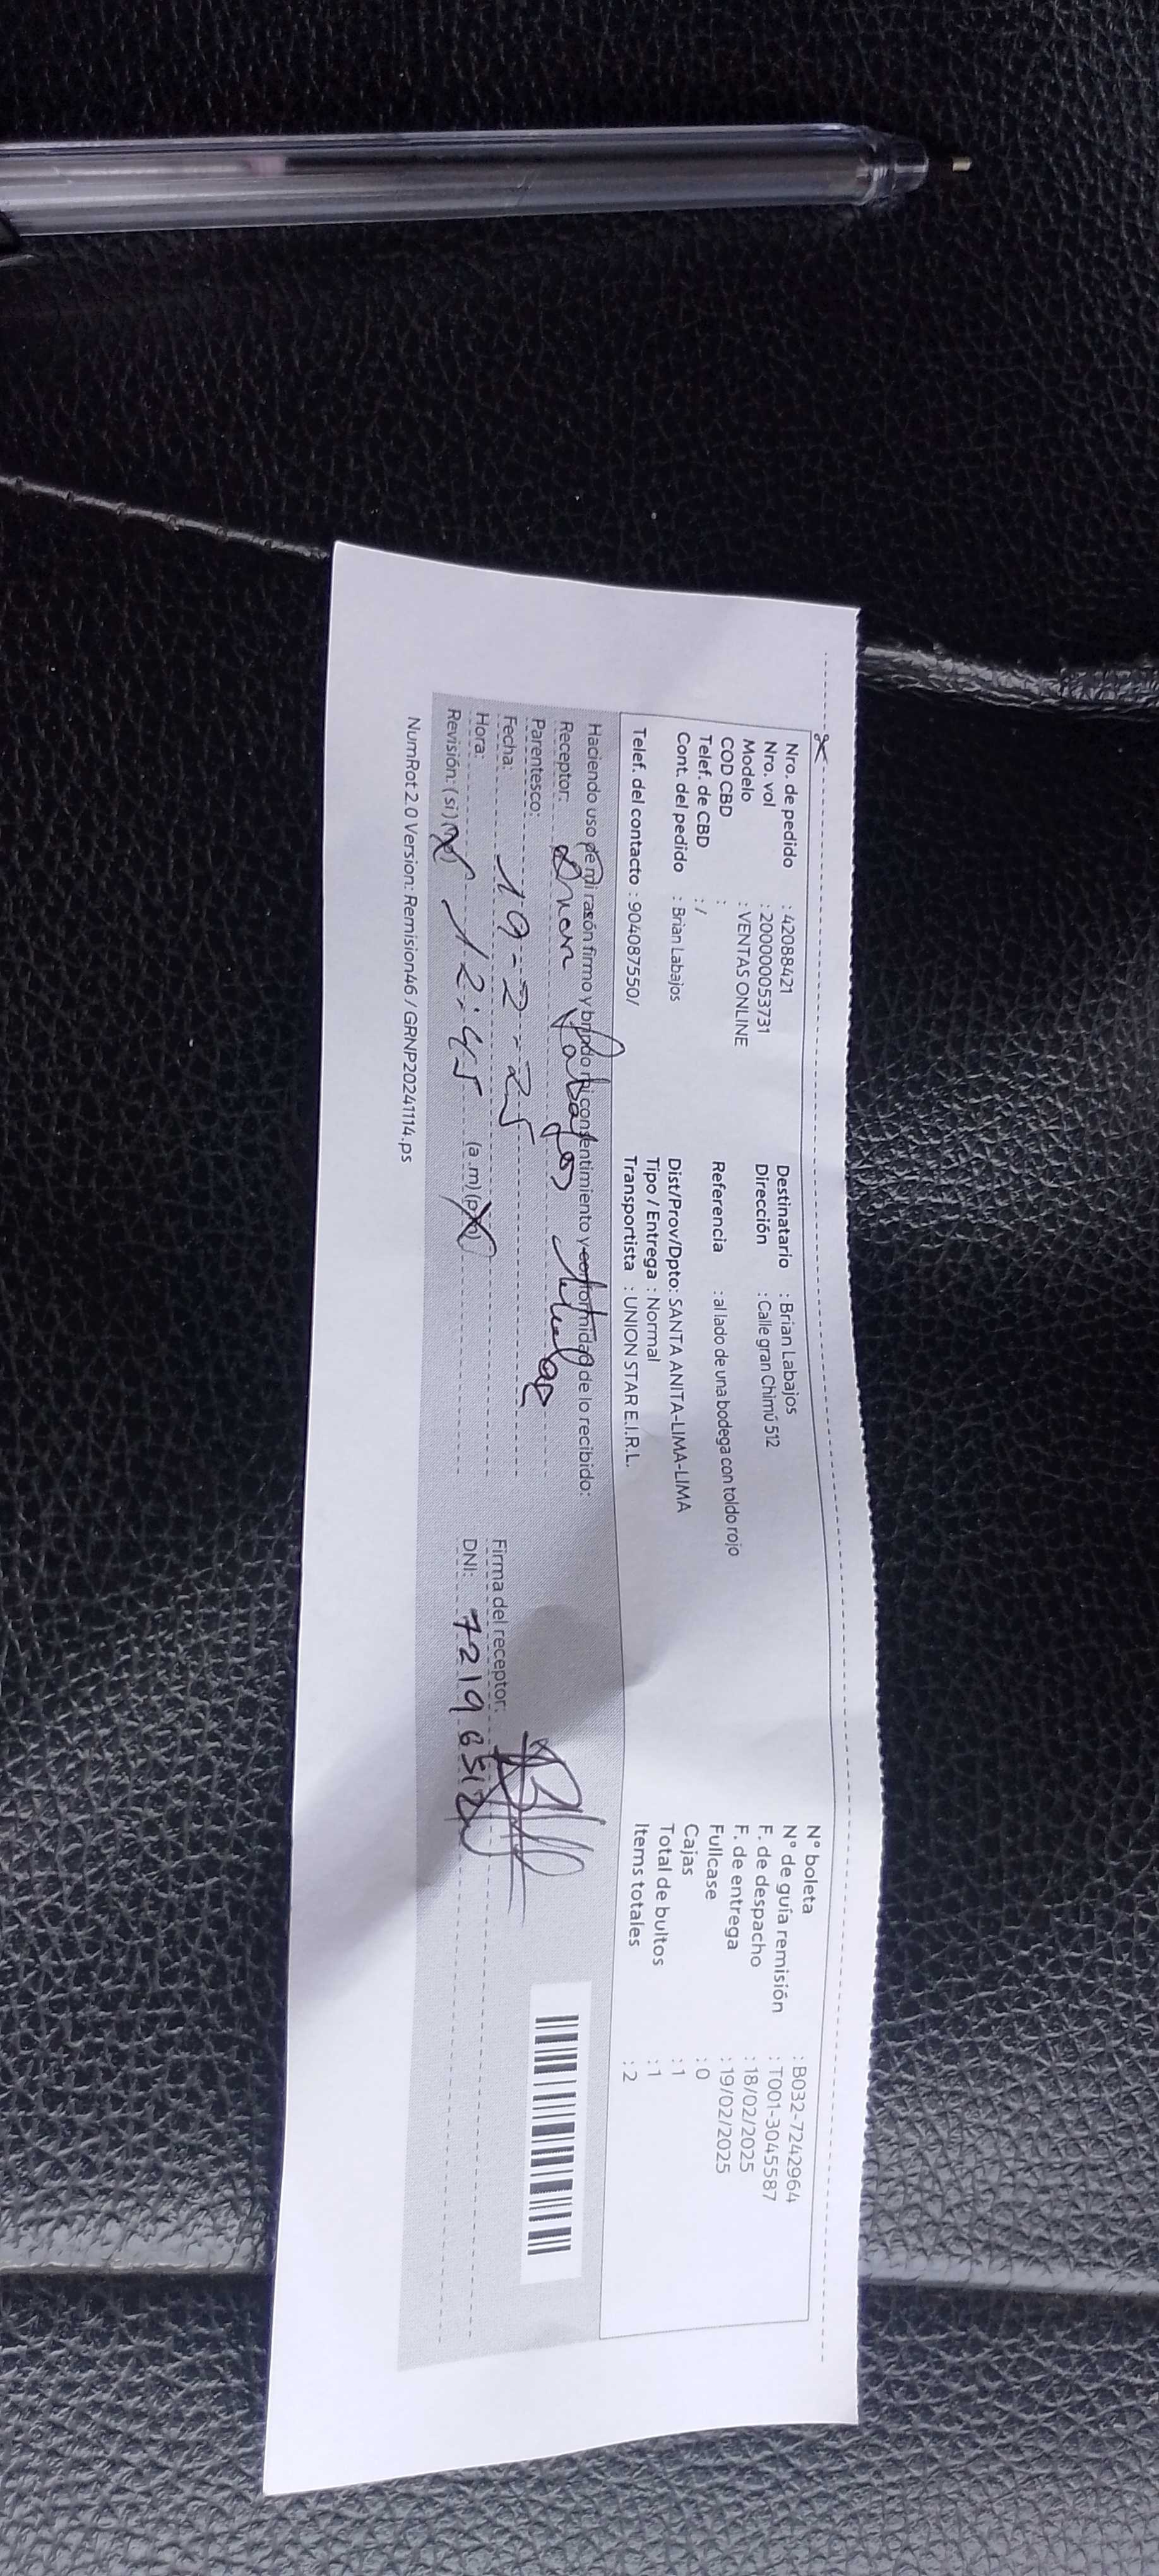 Nro. de pedido : 42088421
Nro. vol : 200000053731
Modelo : VENTAS ONLINE
COD CBD :
Telef. de CBD : /
Cont. del pedido : Brian Labajos
Telef. del contacto : 904087550/
Destinatario : Brian Labajos
Dirección : Calle gran Chimú 512
Referencia : al lado de una bodega con toldo rojo
Dist/Prov/Dpto: SANTA ANITA-LIMA-LIMA
Tipo / Entrega : Normal
Transportista : UNION STAR E.I.R.L.
N° boleta : B032-7242964
N° de guía remisión : T001-3045587
F. de despacho : 18/02/2025
F. de entrega : 19/02/2025
Fullcase : 0
Cajas : 1
Total de bultos : 1
Items totales : 2
Haciendo uso de mi razón firmo y brindo mi consentimiento y conformidad de lo recibido:
Receptor: Labajos
Parentesco:
Fecha: 19-2-25
Hora: 12:45 (a.m)(p.m)
Revisión: (si)(no)
Firma del receptor:
DNI: 721965
NumRot.2.0 Version: Remision46 / GRNP20241114.ps